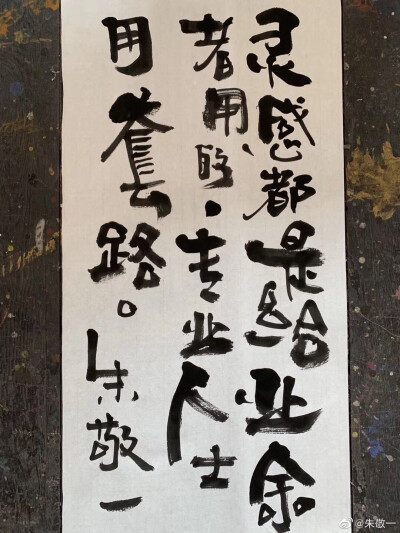 灵感都是给业余
者用的，专业人士
用套路。朱敬一
@朱敬一